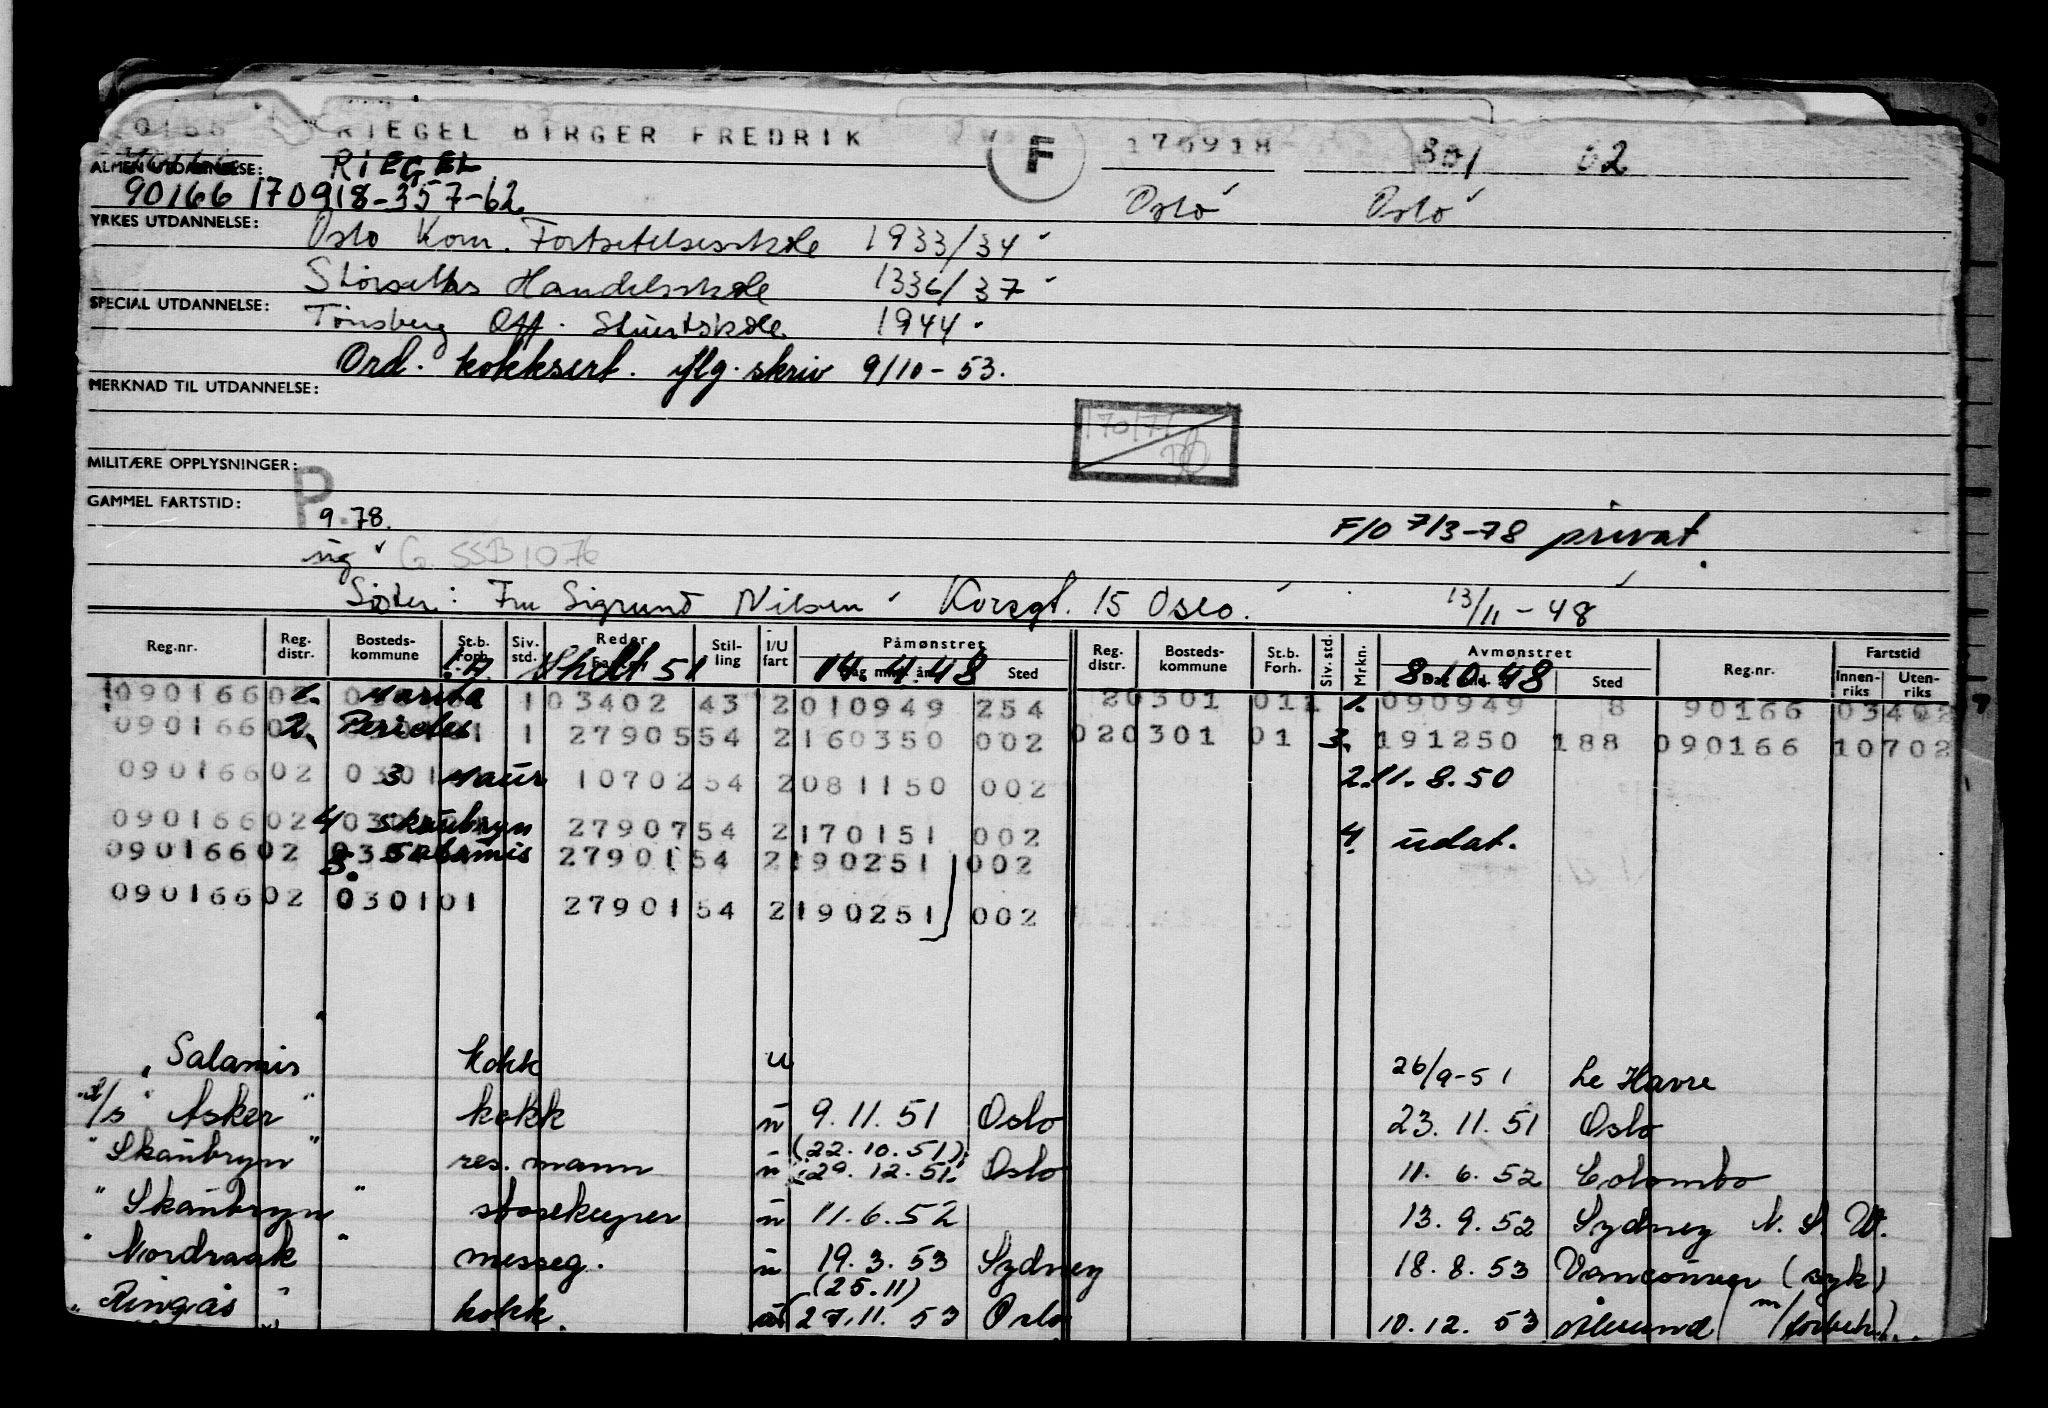 RIEGEL BIRGER FREDRIK F 170918 301 02
ALMEN UTDANNELSE: RIEGEL
90166 170918-357-62 Oslo Oslo
YRKES UTDANNELSE: Oslo Kom. Fortsetelsesskole 1933/34
Handelsskole 1936/37
SPECIAL UTDANNELSE: Tønsberg Off. Stuertskole 1944
Ord. kokksert. iflg. skriv 9/10-53.
MERKNAD TIL UTDANNELSE:
MILITÆRE OPPLYSNINGER:
GAMMEL FARTSTID: P
9.78. F/O 7/3-78 privat.
ug G. SSB1076
Søster: Fru Sigrund Nilsen Korsgt. 15 Oslo. 13/11-48
Reg.nr. Reg. distr. Bosteds-kommune St.b. Forh. Siv. std. Reder Stil-ling I/U fart Påmønstret Sted Reg. distr. Bosteds-kommune St.b. Forh. Siv. std. Mrkn. Avmønstret Sted Reg.nr. Fartstid Innen-riks Uten-riks
51 8.10.48
09016602 1. 1 03402 43 2 010949 254 20301 011 1. 090949 8 90166 03402
09016602 2. Pericles 1 27905 54 2 160350 002 020301 01 3. 191250 188 090166 10702
09016602 3 Maur 10702 54 2 081150 002 2. 11.8.50
09016602 4 Skaubryn 27907 54 2 170151 002 4. udat.
09016602 5. Salamis 27901 54 2 190251 002
09016602 030101 27901 54 2 190251 002
" Salamis kokk u 26/9-51 Le Havre
d/s "Asker" kokk u 9.11.51 Oslo 23.11.51 Oslo
(22.10.51)
"Skaubryn" res. mann u 29.12.51 Oslo 11.6.52 Colombo
"Skaubryn" storekeeper u 11.6.52 13.9.52 Sydney N.S.W.
"Nordraak" messeg. u 19.3.53 Sydney 18.8.53 Vancouver (syk)
(25.11)
"Ringås" kokk 27.11.53 Oslo 10.12.53 Ålesund